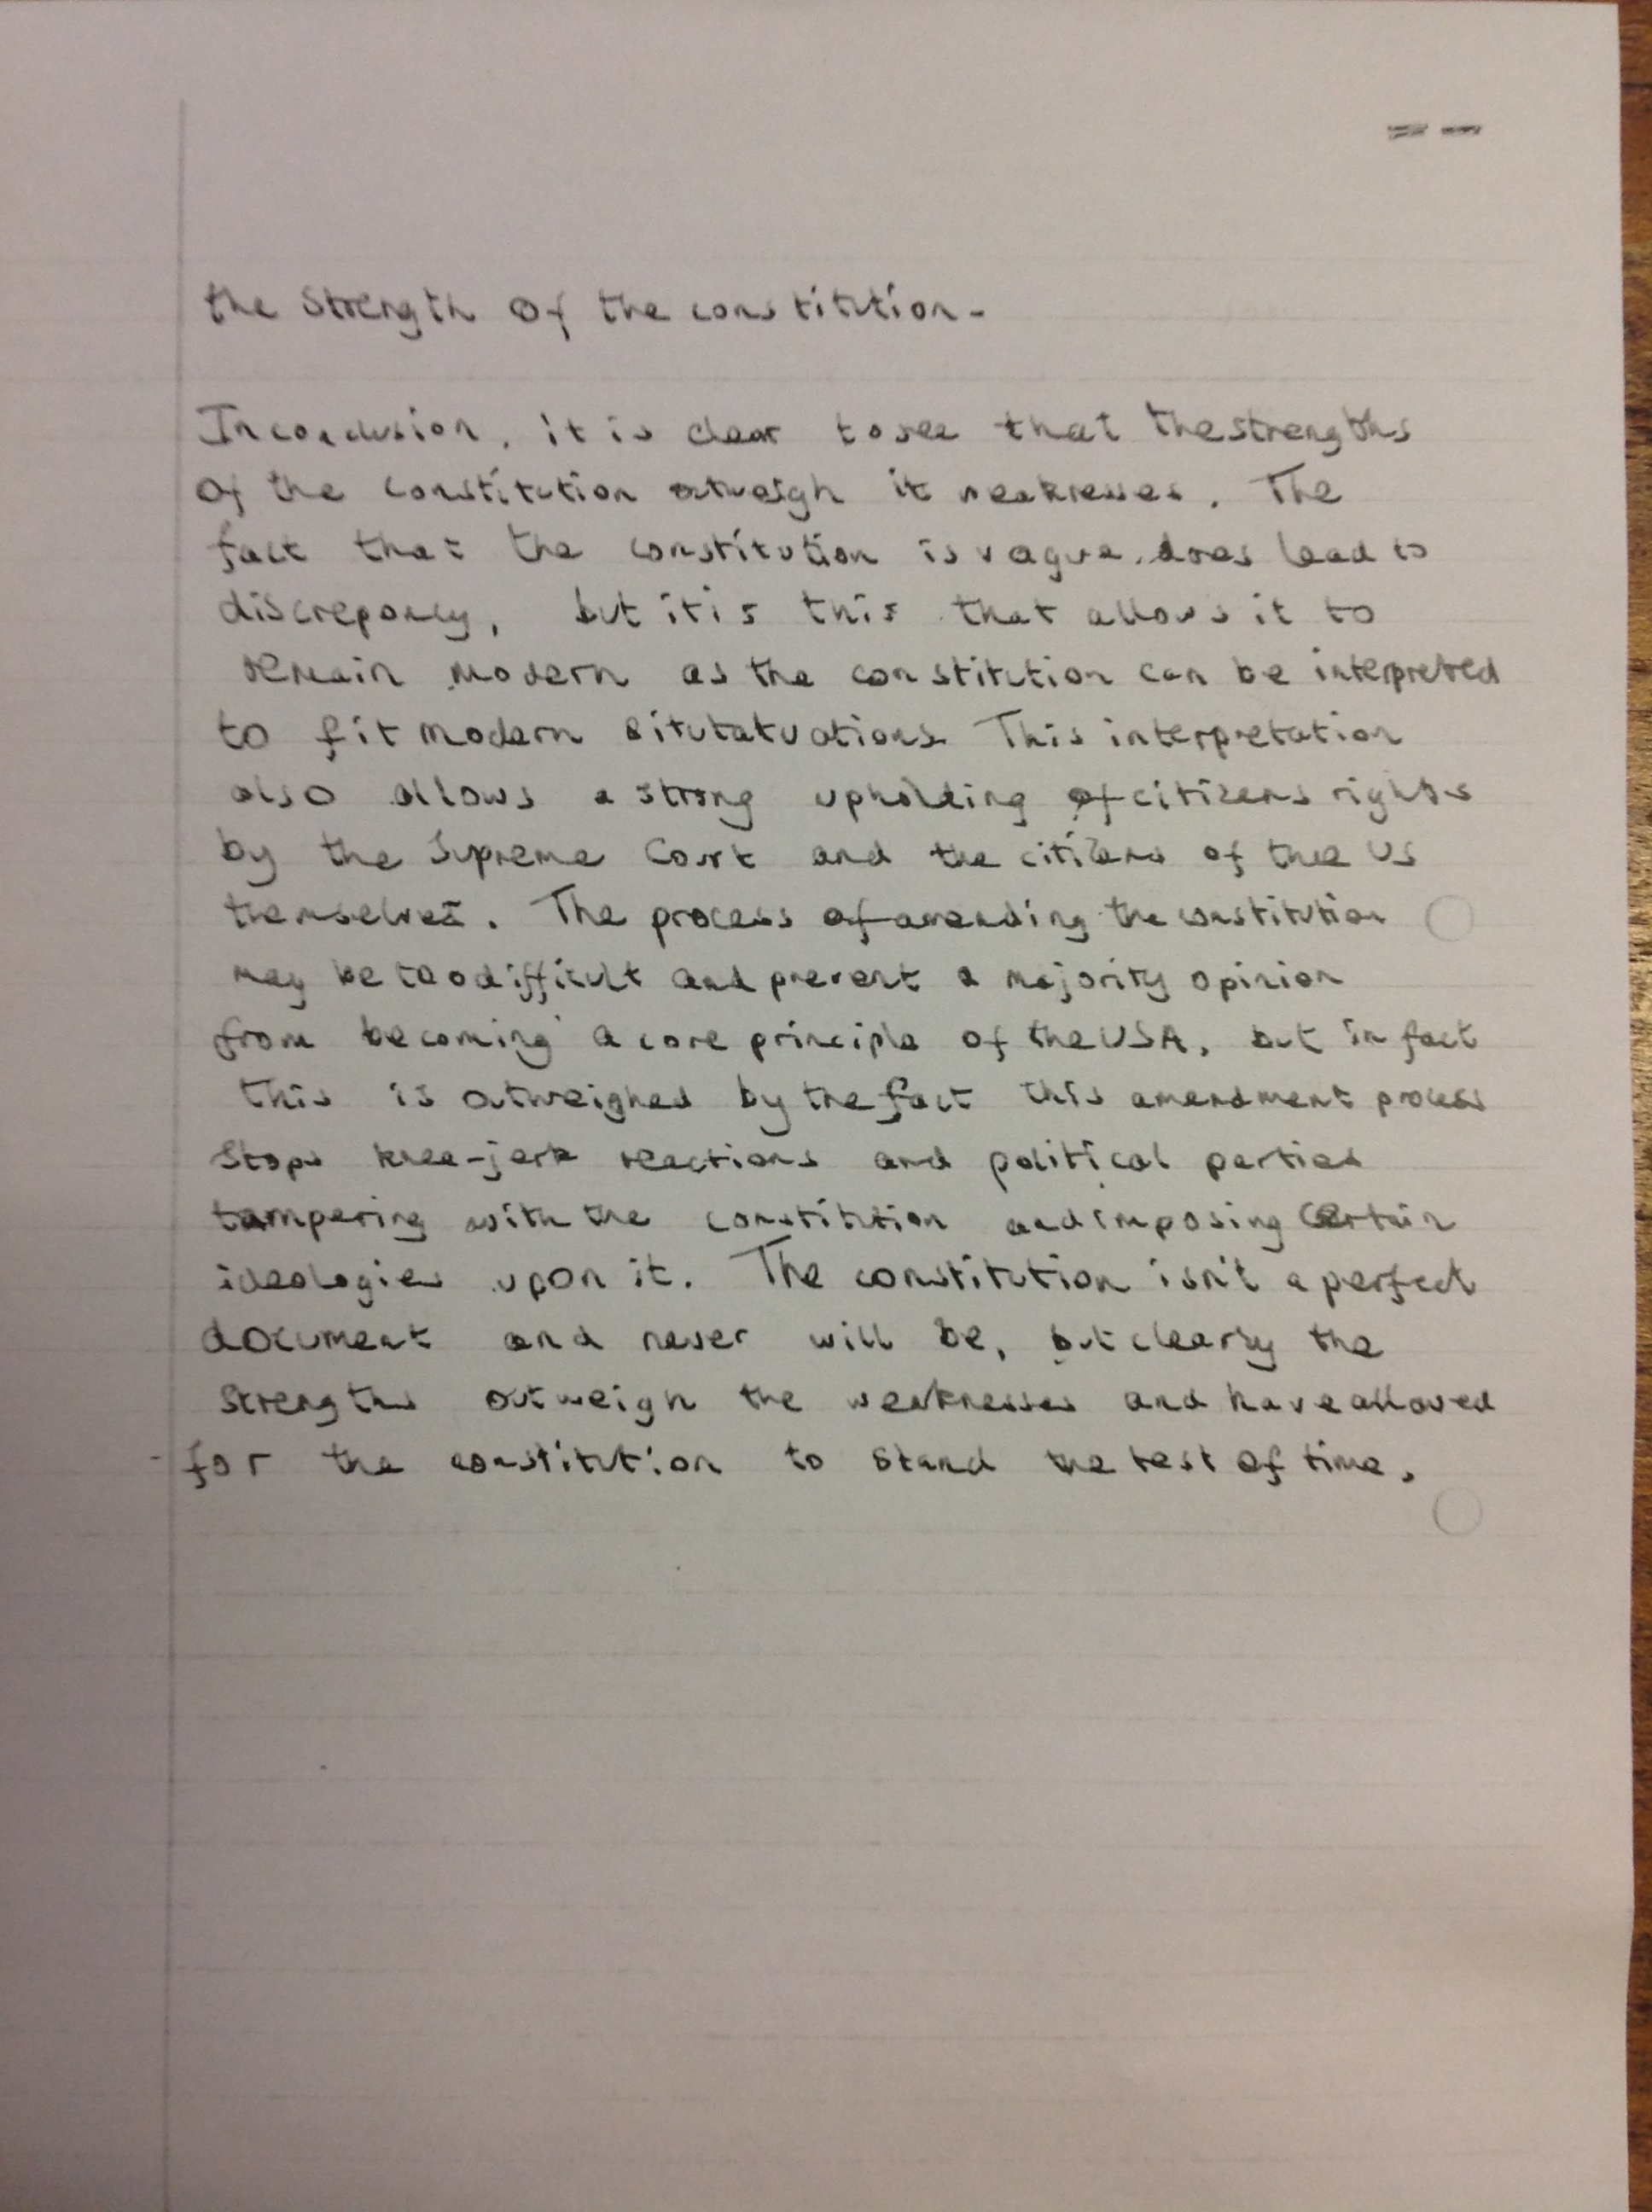 the strength of the constitution.
In conclusion, it is clear to see that the strengths
of the constitution outweigh it weaknesses. The
fact that the constitution is vague does lead to
discrepancy, but it is this that allows it to
remain modern as the constitution can be interpreted
to fit modern situtatuations. This interpretation
also allows a strong upholding of citizens rights
by the Supreme Court and the citizens of thee US
themselves. The process of amending the constitution
may be too difficult and prevent a majority opinion
from becoming a core principle of the USA, but in fact
this is outweighed by the fact this amendment process
stops knee-jerk reactions and political parties
tampering with the constitution and imposing certain
ideologies upon it. The constitution isn't a perfect
document and never will be, but clearly the
strengths outweigh the weaknesses and have allowed
for the constitution to stand the test of time.